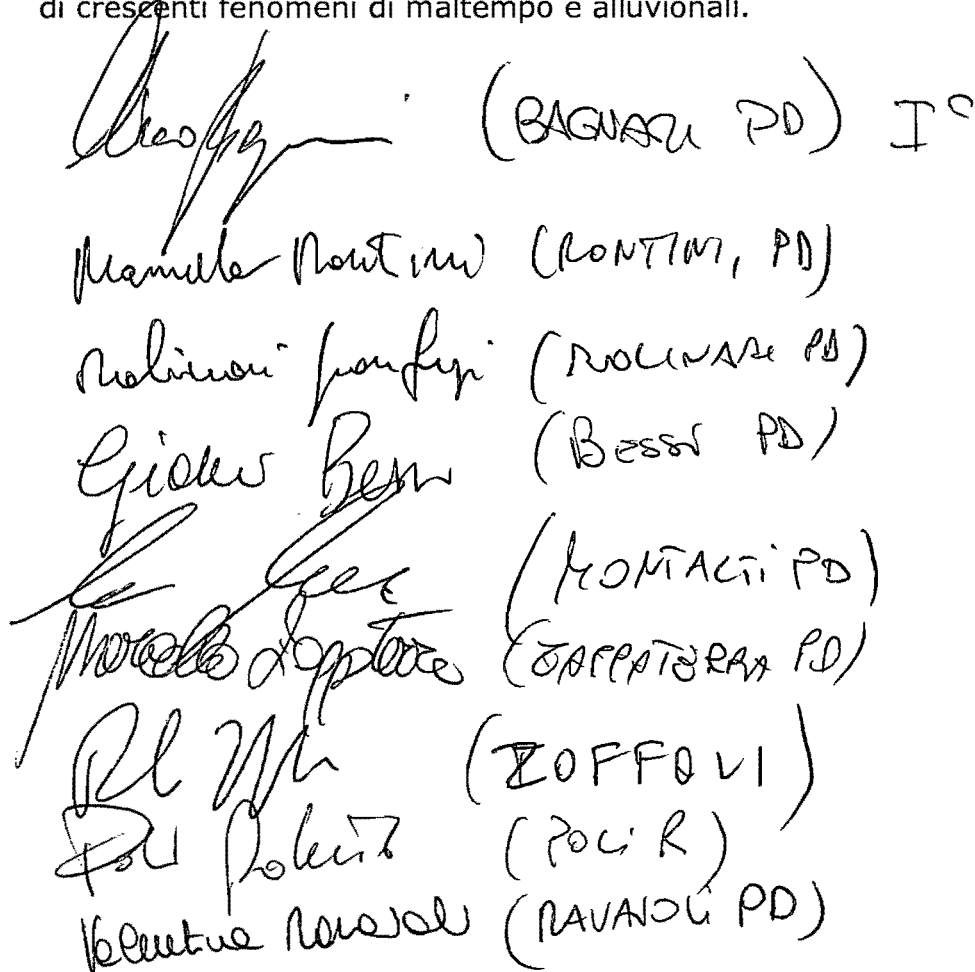 di crescenti fenomeni di maltempo e alluvionali.
(BAGNARI PD) I°
Manuela Rontini (RONTINI, PD)
Molinari Gianluigi (MOLINARI PD)
Gianni Bessi (BESSI PD)
(MONTALTI PD)
Marcella Zappaterra (ZAPPATERRA PD)
(ZOFFOLI)
Poli Roberto (POLI R)
Valentina Ravaioli (RAVAIOLI PD)